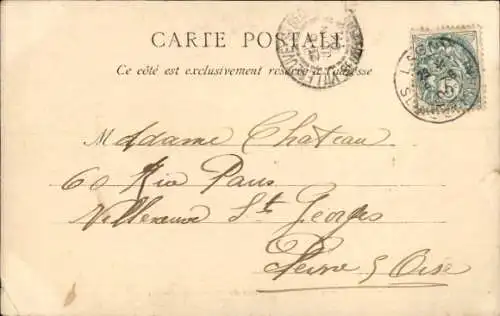 CARTE POSTALE
Ce côté est exclusivement réservé à l'adresse
Madame Chateau
60 Rue Paris
Villeneuve St Georges
Seine & Oise